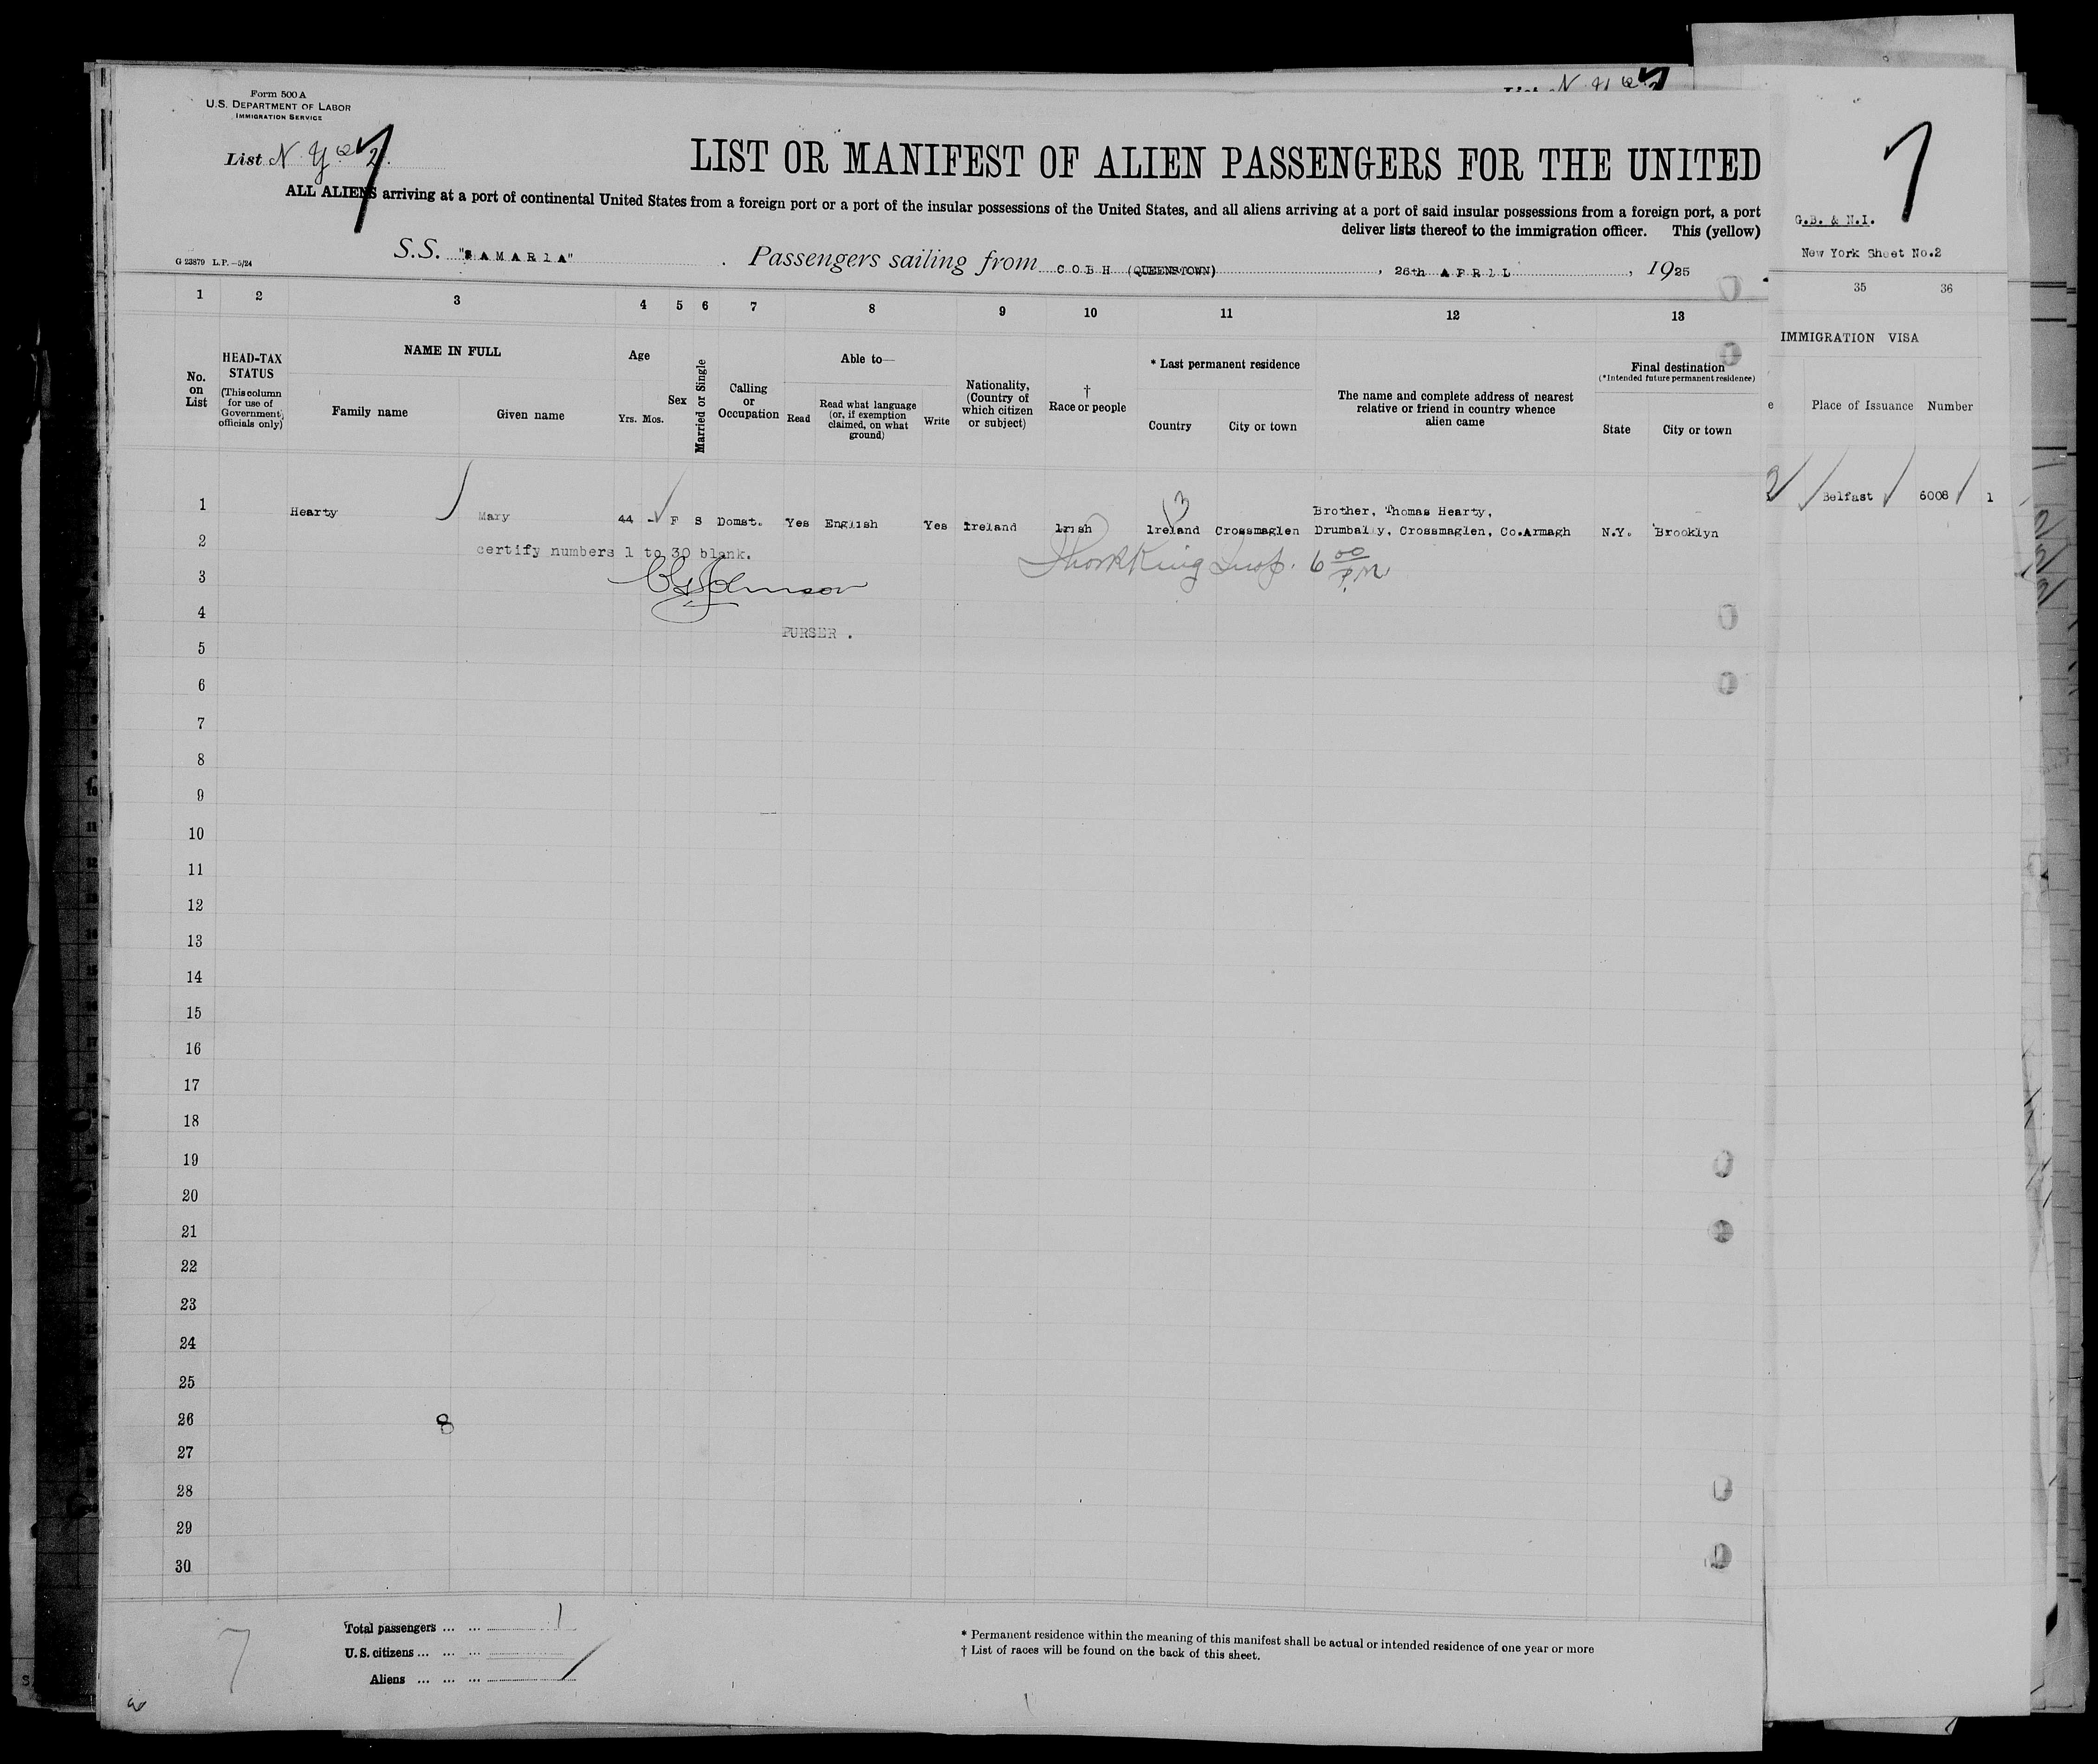 Form 500 A
U.S. DEPARTMENT OF LABOR
IMMIGRATION SERVICE
List N. Y. 2.
7
LIST OR MANIFEST OF ALIEN PASSENGERS FOR THE UNITED
ALL ALIENS arriving at a port of continental United States from a foreign port or a port of the insular possessions of the United States, and all aliens arriving at a port of said insular possessions from a foreign port, a port
deliver lists thereof to the immigration officer. This (yellow)
G 23879 L.P.—5/24
S.S. "SAMARIA" . Passengers sailing from COBH (QUEENSTOWN), 26th APRIL, 1925
7
G.B. & N.I.
New York Sheet No.2
1 2 3 4 5 6 7 8 9 10 11 12 13 35 36
No. on List
HEAD-TAX STATUS
(This column for use of Government officials only)
NAME IN FULL
Family name
Given name
Age
Yrs. Mos.
Sex
Married or Single
Calling or Occupation
Able to—
Read
Read what language (or, if exemption claimed, on what ground)
Write
Nationality, (Country of which citizen or subject)
† Race or people
* Last permanent residence
Country
City or town
The name and complete address of nearest relative or friend in country whence alien came
Final destination
(*Intended future permanent residence)
State
City or town
IMMIGRATION VISA
e Place of Issuance Number
1 Hearty Mary 44 - F S Domst. Yes English Yes Ireland Irish Ireland Crossmaglen Brother, Thomas Hearty,
Drumbally, Crossmaglen, Co.Armagh N.Y. Brooklyn
2 Belfast 6008 1
3
2
certify numbers 1 to 30 blank.
Insp. 6 00 P.M.
3
Johnson
4
PURSER .
5
6
7
8
9
10
11
12
13
14
15
16
17
18
19
20
21
22
23
24
25
26
8
27
28
29
30
Total passengers ... ... 1
U.S. citizens ... ... ...
Aliens ... ... ... 1
7
* Permanent residence within the meaning of this manifest shall be actual or intended residence of one year or more
† List of races will be found on the back of this sheet.